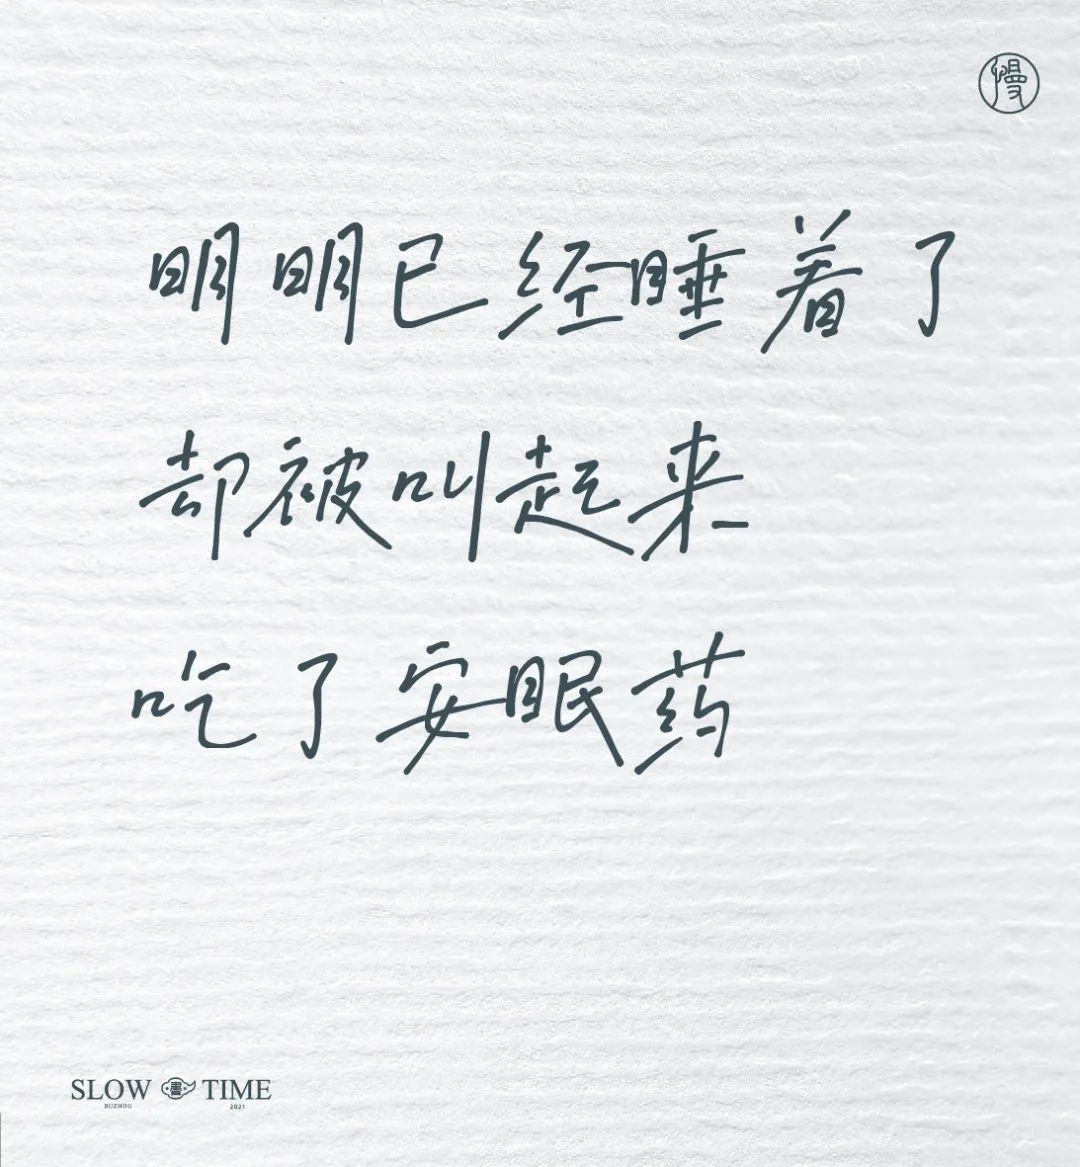 慢
明明已经睡着了
却被叫起来
吃了安眠药
SLOW 書 TIME
SUZHOU 2021